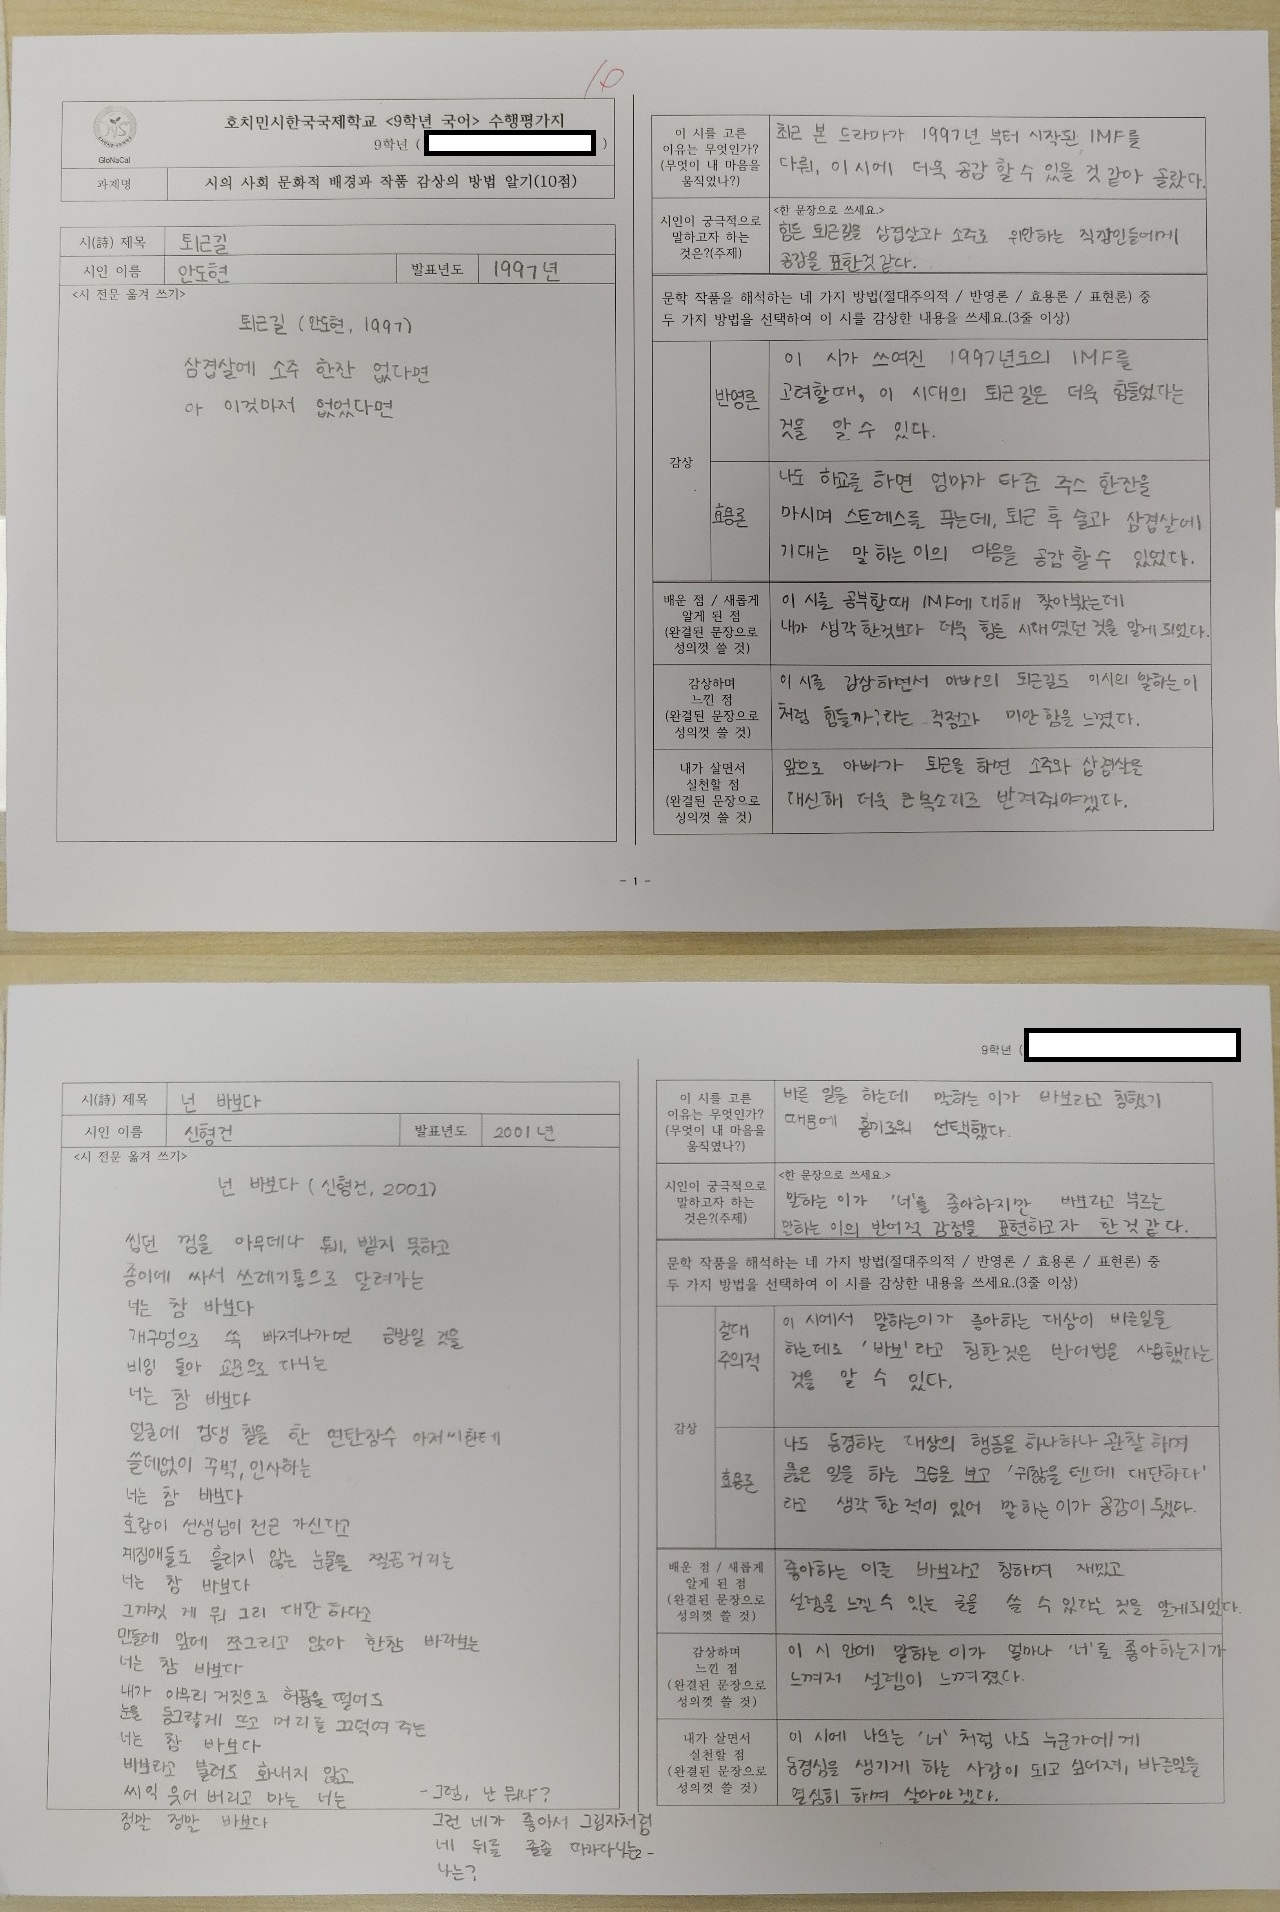 10
호치민시한국국제학교 <9학년 국어> 수행평가지
9학년 ( )
GloNaCal
과제명
시의 사회 문화적 배경과 작품 감상의 방법 알기(10점)
시(詩) 제목 퇴근길
시인 이름 안도현 발표년도 1997년
<시 전문 옮겨 쓰기>
퇴근길 (안도현, 1997)
삼겹살에 소주 한잔 없다면
아 이것마저 없었다면
이 시를 고른
이유는 무엇인가?
(무엇이 내 마음을
움직였나?)
최근 본 드라마가 1997년 부터 시작된 IMF를
다뤄, 이 시에 더욱 공감 할 수 있을 것 같아 골랐다.
시인이 궁극적으로
말하고자 하는
것은?(주제)
<한 문장으로 쓰세요.>
힘든 퇴근길을 삼겹살과 소주로 위안하는 직장인들에게
공감을 표한것 같다.
문학 작품을 해석하는 네 가지 방법(절대주의적 / 반영론 / 효용론 / 표현론) 중
두 가지 방법을 선택하여 이 시를 감상한 내용을 쓰세요.(3줄 이상)
감상
반영론
이 시가 쓰여진 1997년도의 IMF를
고려할때, 이 시대의 퇴근길은 더욱 힘들었다는
것을 알 수 있다.
효용론
나도 하교를 하면 엄마가 타준 주스 한잔을
마시며 스트레스를 푸는데, 퇴근 후 술과 삼겹살에
기대는 말 하는 이의 마음을 공감 할 수 있었다.
배운 점 / 새롭게
알게 된 점
(완결된 문장으로
성의껏 쓸 것)
이 시를 공부할때 IMF에 대해 찾아봤는데
내가 생각 한것보다 더욱 힘든 시대였던 것을 알게 되었다.
감상하며
느낀 점
(완결된 문장으로
성의껏 쓸 것)
이 시를 감상하면서 아빠의 퇴근길도 이시의 말하는이
처럼 힘들까?라는 걱정과 미안 함을 느꼈다.
내가 살면서
실천할 점
(완결된 문장으로
성의껏 쓸 것)
앞으로 아빠가 퇴근을 하면 소주와 삼겹살을
대신해 더욱 큰 목소리로 반겨줘야겠다.
- 1 -
9학년 (
시(詩) 제목 넌 바보다
시인 이름 신형건 발표년도 2001년
<시 전문 옮겨 쓰기>
넌 바보다 (신형건, 2001)
씹던 껌을 아무데나 퉤, 뱉지 못하고
종이에 싸서 쓰레기통으로 달려가는
너는 참 바보다
개구멍으로 쏙 빠져나가면 금방일 것을
비잉 돌아 교문으로 다니는
너는 참 바보다
얼굴에 검댕 칠을 한 연탄장수 아저씨한테
쓸데없이 꾸벅, 인사하는
너는 참 바보다
호랑이 선생님이 전근 가신다고
계집애들도 흘리지 않는 눈물을 찔끔거리는
너는 참 바보다
그까짓 게 뭐 그리 대단 하다고
민들레 앞에 쪼그리고 앉아 한참 바라보는
너는 참 바보다
내가 아무리 거짓으로 허풍을 떨어도
눈을 동그랗게 뜨고 머리를 끄덕여 주는
너는 참 바보다
바보라고 불러도 화내지 않고
씨익 웃어 버리고 마는 너는
정말 정말 바보다
- 그럼, 난 뭐냐?
그런 네가 좋아서 그림자처럼
네 뒤를 졸졸 따라다니는
나는?
- 2 -
이 시를 고른
이유는 무엇인가?
(무엇이 내 마음을
움직였나?)
바른 일을 하는데 말하는 이가 바보라고 칭했기
때문에 흥미로워 선택했다.
시인이 궁극적으로
말하고자 하는
것은?(주제)
<한 문장으로 쓰세요.>
말하는 이가 '너'를 좋아하지만 바보라고 부르는
말하는 이의 반어적 감정을 표현하고자 한것 같다.
문학 작품을 해석하는 네 가지 방법(절대주의적 / 반영론 / 효용론 / 표현론) 중
두 가지 방법을 선택하여 이 시를 감상한 내용을 쓰세요.(3줄 이상)
감상
절대
주의적
이 시에서 말하는이가 좋아하는 대상이 바른일을
하는데도 '바보'라고 칭한것은 반어법을 사용했다는
것을 알 수 있다.
효용론
나도 동경하는 대상의 행동을 하나하나 관찰 하며
옳은 일을 하는 모습을 보고 '귀찮을 텐데 대단하다'
라고 생각 한 적이 있어 말 하는 이가 공감이 됐다.
배운 점 / 새롭게
알게 된 점
(완결된 문장으로
성의껏 쓸 것)
좋아하는 이를 바보라고 칭하며 재밌고
설렘을 느낄 수 있는 글을 쓸 수 있다는 것을 알게되었다.
감상하며
느낀 점
(완결된 문장으로
성의껏 쓸 것)
이 시 안에 말하는 이가 얼마나 '너'를 좋아하는지가
느껴져 설렘이 느껴졌다.
내가 살면서
실천할 점
(완결된 문장으로
성의껏 쓸 것)
이 시에 나오는 '너' 처럼 나도 누군가에게
동경심을 생기게 하는 사람이 되고 싶어져, 바른일을
열심히 하며 살아야겠다.